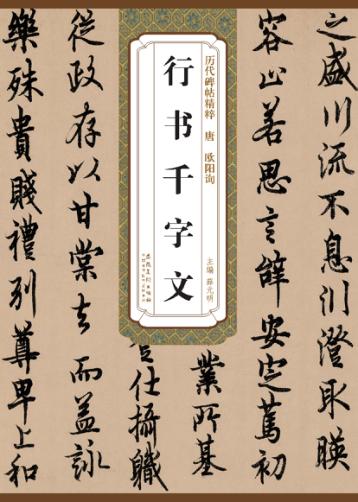 之盛川流不息渊澄取暎
容止若思言辭安定篤初
業所基
仕攝職
從政存以甘棠去而益詠
樂殊貴賤禮別尊卑上和
历代碑帖精粹 唐 欧阳询
行书千字文
主编 薛元明